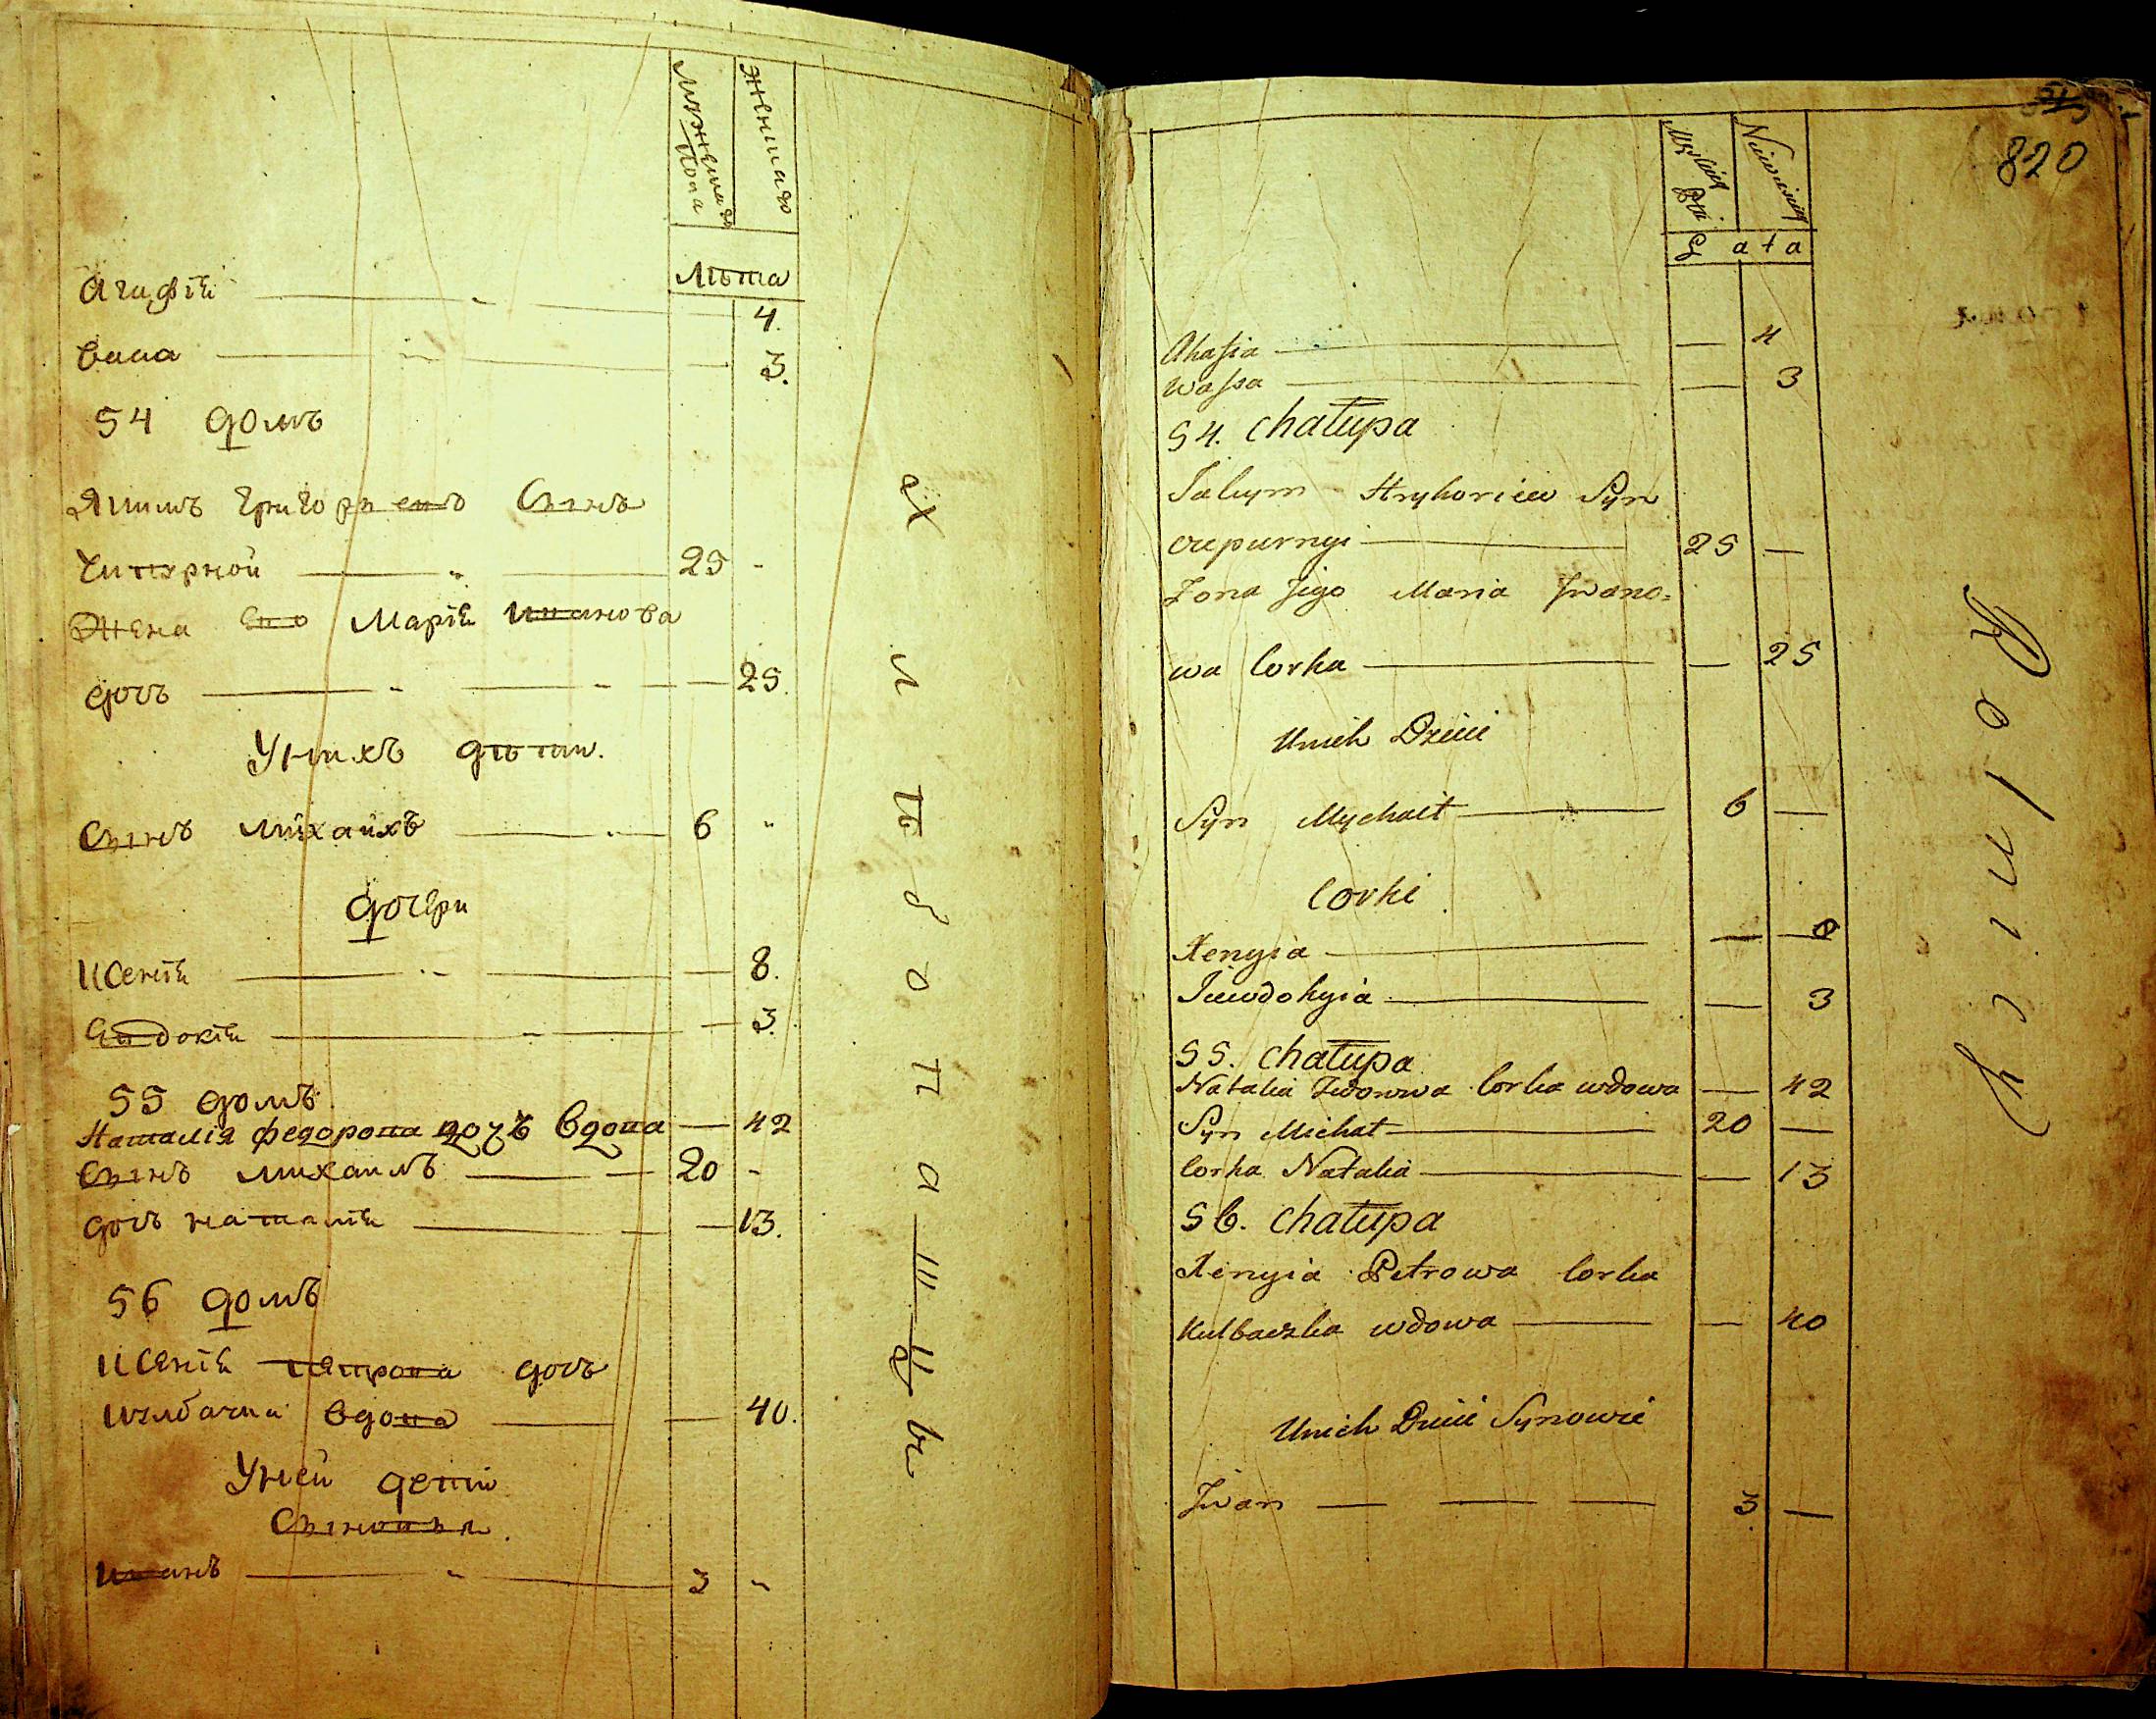 Мужеска Пола
Женщаго
Лѣта
Агафіи 4.
васа 3.
54 домъ
Якимъ Григорьевъ Сынъ
Чипурной 25 -
Жена его Маріи Иванова
дочъ 25.
Унихъ дѣти.
Сынъ Михаилъ 6 "
дочери
Ксеніи 8.
Евдокіи 3.
55 домъ
Наталія федорова дочъ вдова 42
Сынъ михаилъ 20 -
дочъ наталіи 13.
56 домъ
Ксеніи петрова дочъ
кулбачки вдова 40.
Уней дети
Сыновья.
Иванъ 3 "
хлѣбопашцы
820
Męzkiej Płci
Niewieściej
Lata
Ahafia 4
Wassa 3
54. chałupa
Jakym Hryhoriew Syn
czepurnyi 25 —
Żona Jego Maria Iwano=
wa Corka — 25
Unich Dzieci
Syn Mychaił 6 —
Corki
Xenyia — 8
Jewdokyia — 3
55. chałupa
Natalia Fedorowa Corka wdowa — 42
Syn Michał 20 —
Corka Natalia — 13
56. chałupa
Xenyia Petrowa Corka
Kulbaczka wdowa — 40
Unich Dzieci Synowie
Iwan 3 —
Rolnicy